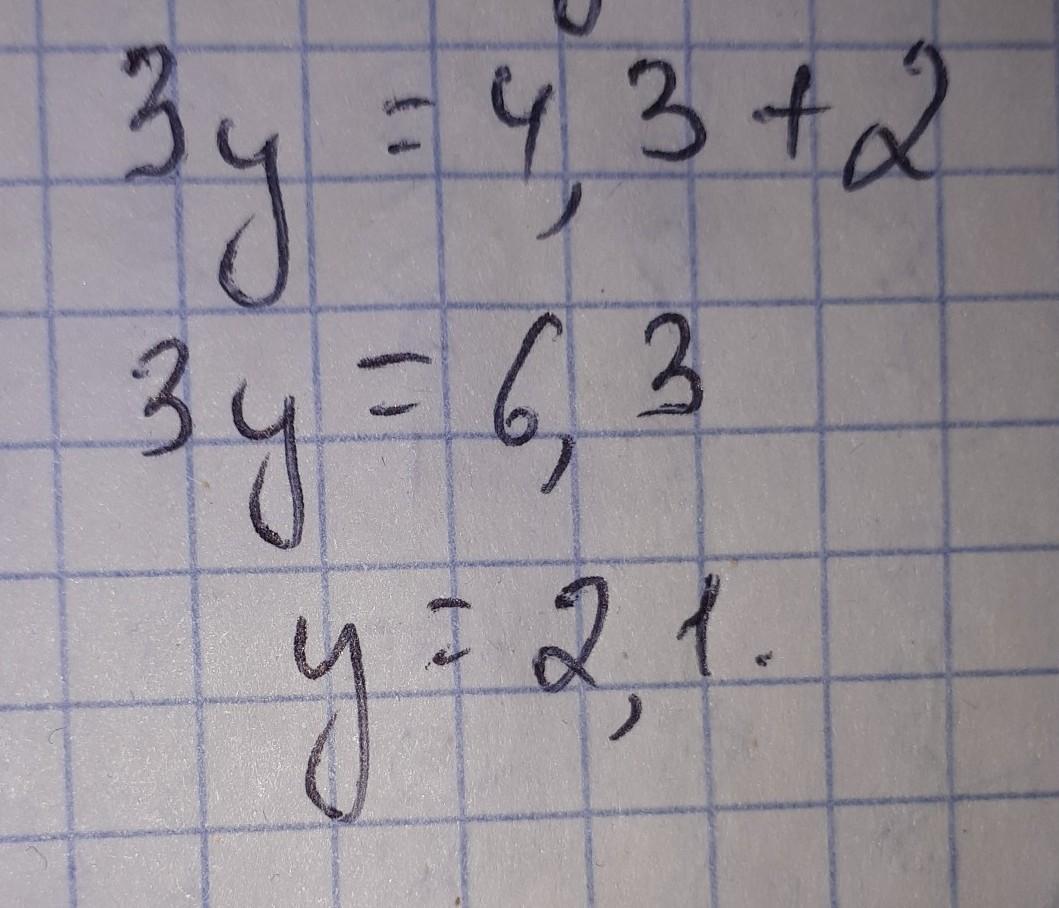 3y = 4,3 + 2
3y = 6,3
y = 2,1.